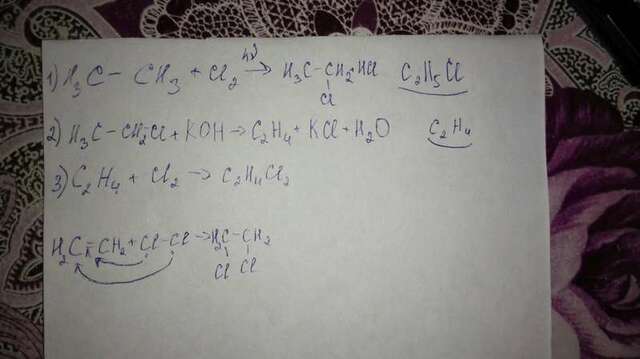 1) H₃C – CH₃ + Cl₂ hν→ H₃C – CH₂ HCl C₂H₅Cl
Cl
2) H₃C – CH₂Cl + KOH → C₂H₄ + KCl + H₂O C₂H₄
3) C₂H₄ + Cl₂ → C₂H₄Cl₂
H₂C = CH₂ + Cl – Cl → H₂C – CH₂
Cl Cl